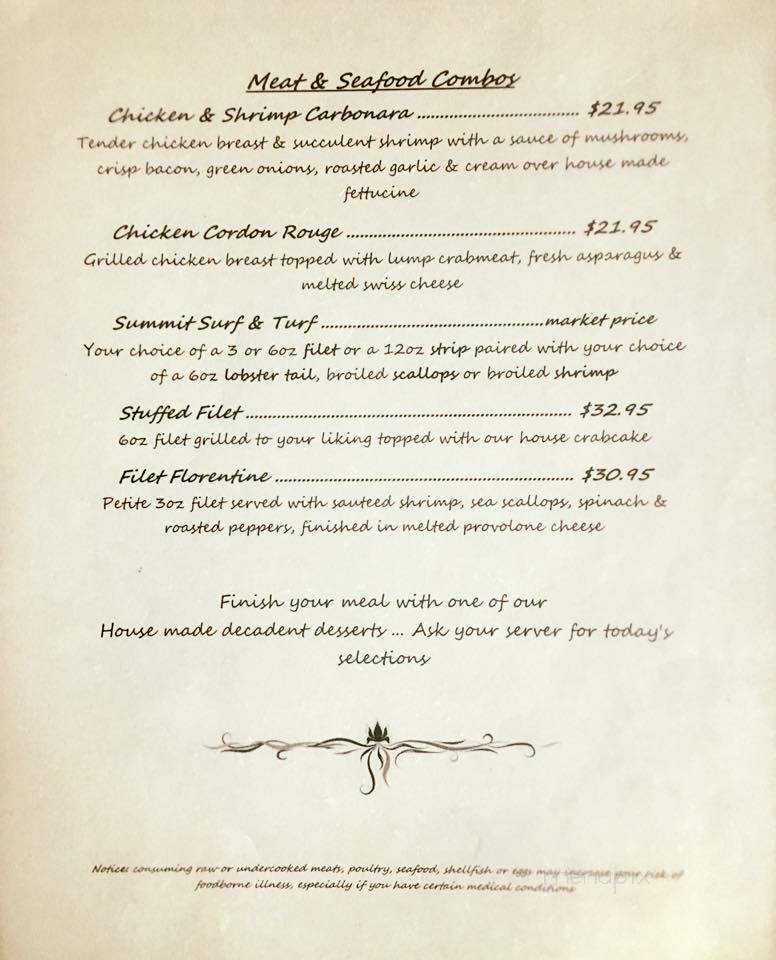 Meat & Seafood Combos
Chicken & Shrimp Carbonara ................................... $21.95
Tender chicken breast & succulent shrimp with a sauce of mushrooms,
crisp bacon, green onions, roasted garlic & cream over house made
fettucine
Chicken Cordon Rouge .................................................. $21.95
Grilled chicken breast topped with lump crabmeat, fresh asparagus &
melted swiss cheese
Summit Surf & Turf ................................................market price
Your choice of a 3 or 6oz filet or a 12oz strip paired with your choice
of a 6oz lobster tail, broiled scallops or broiled shrimp
Stuffed Filet ...................................................................... $32.95
6oz filet grilled to your liking topped with our house crabcake
Filet Florentine ................................................................ $30.95
Petite 3oz filet served with sauteed shrimp, sea scallops, spinach &
roasted peppers, finished in melted provolone cheese
Finish your meal with one of our
House made decadent desserts ... Ask your server for today's
selections
Notice: consuming raw or undercooked meats, poultry, seafood, shellfish or eggs may increase your risk of
foodborne illness, especially if you have certain medical conditions
menupix